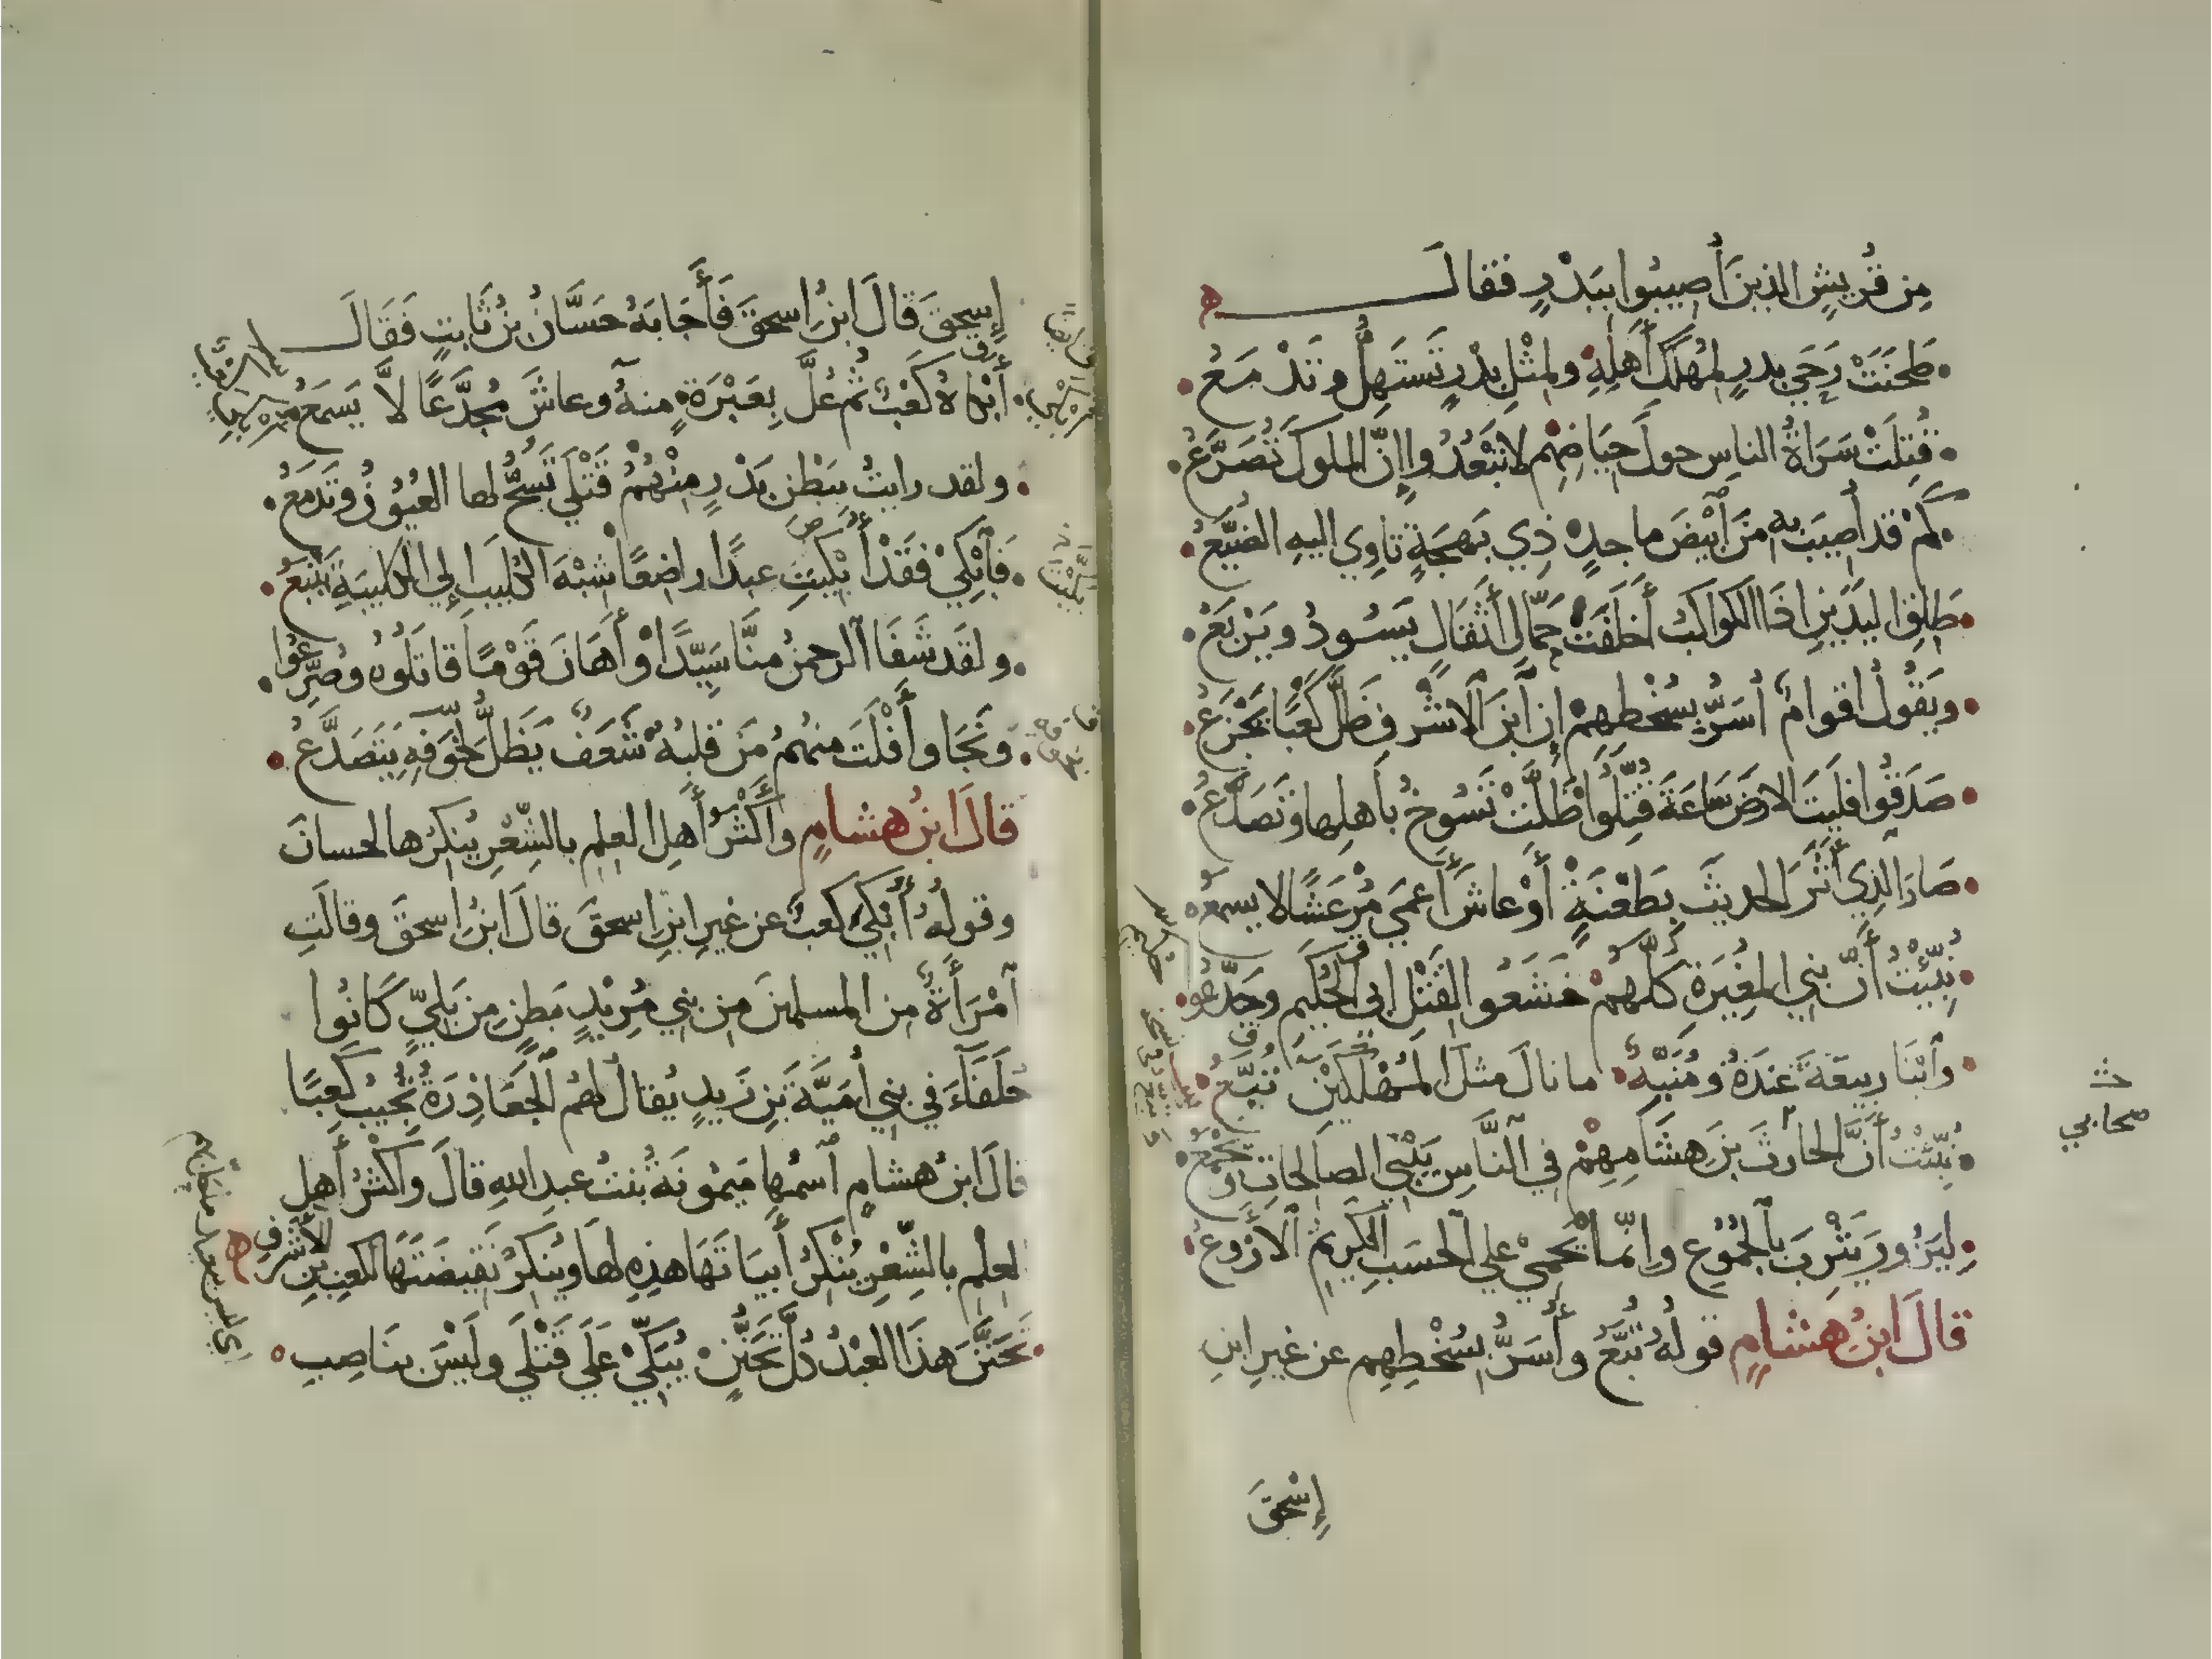 مِن قُرَيشٍ الذينَ أُصِيبُوا بِبَدْرٍ فقال
طَحَنَتْ رَحَي بدرٍ لِمُهْلَكِ أَهلِهِ ولِمْثلِ بدْرٍ تَستَهِلُّ وتَدْمَعُ
قُتِلَتْ سَرَاةُ الناسِ حولَ حِيَاضِهِم لا تَبْعُدُوا إِنَّ الملوكَ تُصَرَّعُ
كَمْ قد أُصِيبَ به مِنَ ابْيَضَ ماجدٍ ذِي بَهجَةٍ تاوِي اليهِ الضُيَّعُ
طَلِقِ اليدَينِ اذا الكواكبُ أَخلَفَتْ حَمَّالِ أَثْقَالٍ يَسُودُ ويَرْبَعُ
ويَقُولُ اقوامٌ أُسَرُّ بِسُخْطِهِمْ إن ابنَ الاشْرفِ ظلَّ كَعْبًا يَجْزَعُ
صَدَقُوا فلَيتَ الارضَ سَاعَةَ قُتِّلُوا ظَلَّتْ تَسُوخُ بأَهلِها وتَصَدَّعُ
صَارَ الذِي أَثَرَ الحديثَ بِطَعْنَةٍ أَوْ عاشَ أَعمَي مُرْعَشًا لا يسمعُ
نُبِّئْتُ أَنَّ بنِي المغِيرَةِ كلَّهُمْ خَشَعُوا لقَتْلِ ابي الحَكِيمِ وجُدِّعُوا
وابْنَا ربيعَةَ عندَهُ ومُنَبِّهٌ ما نالَ مثلَ المُهْلَكِينَ تُبَّعُ
نُبِّئْتُ أَنَّ الحارثَ بنَ هِشَامِهِمْ في النَّاسِ يَبْنِي الصالحاتِ ويَجْمَعُ
لِيَزُورَ يَثْرِبَ بالجُمُوعِ وإنَّما يَحْمِي علي الحسَبِ الكرِيمُ الارْوعُ
قالَ ابنُ هِشامٍ قولُهُ تُبَّعُ وأُسَرُّ بِسُخْطِهِم عن غيرِ ابنِ
إِسْحقَ
صحابي
إِسحقَ قالَ ابنُ اسحقَ فَأَجَابَهُ حَسَّانُ بنُ ثَابتٍ فَقَالَ
أَبْكاهُ كَعْبٌ ثُم عُلَّ بِعَبْرَةٍ منهُ وعاشَ مُجَدَّعًا لا يَسمَعُ
ولقد رايتُ بِبَطْنِ بَدْرٍ مِنْهُمُ قَتْلَي تَسُحُّ لها العُيُونُ وتَدمَعُ
فَابْكِي فقَدْ أَبْكَيتَ عبدًا راضِعًا شِبْهَ الكُلَيبِ إلي الكُليبَةِ يَتْبَعُ
ولقد شَفَا الرحمنُ منَّا سَيِّدًا وأَهَانَ قَوْمًا قاتَلُوهُ وصُرِّعُوا
ونَجَا وأُفْلِتَ منهمُ مَن قلبُهُ شَعَفٌ يَظَلُّ لخَوفِهِ يَتَصَدَّعُ
قالَ ابنُ هشامٍ وأكْثَرُ أَهلِ العلم بالشِّعْرِ يُنكرُها لحسانَ
وقولُهُ أَبْكَي كعبٌ عن غيرِ ابنِ اسحقَ قالَ ابنُ اسحقَ وقالَتِ
امْرَأَةٌ مِن المسلمينَ مِن بنِي مُرِيْدٍ بَطنٍ مِن بَلِيٍّ كَانُوا
حُلَفَآءَ في بنِي أُمَيَّةَ بنِ زَيدٍ يُقالُ لهمُ الجَعَاذِرَةُ تُجِيبُ كعبًا
قالَ ابنُ هشامٍ اسْمُها مَيْمُونَةُ بنتُ عبدِ اللهِ قالَ وأكثرُ أَهلِ
العلم بالشِّعْرِ يُنْكرُ أَبيَاتَهَا هذِهِ لها ويُنكِرُ نَقِيضَتَهَا لكعبِ بنِ الأشرفِ
تَحَنَّنَ هذَا العبْدُ كُلَّ تَحَنُّنٍ يُبَكِّي عَلَي قَتْلَي ولَيْسَ بنَاصِبِ